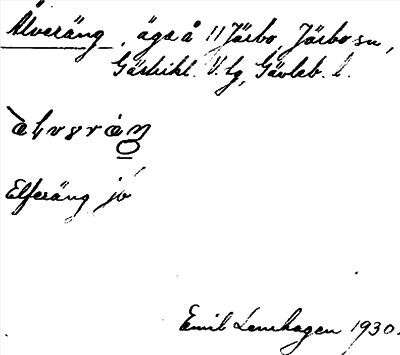 Älveräng, äga å 11 Järbo, Järbo sn,
Gästrikl. V. lg, Gävleb. l.
Elfveräng jb
Emil Lenhagen 1930.